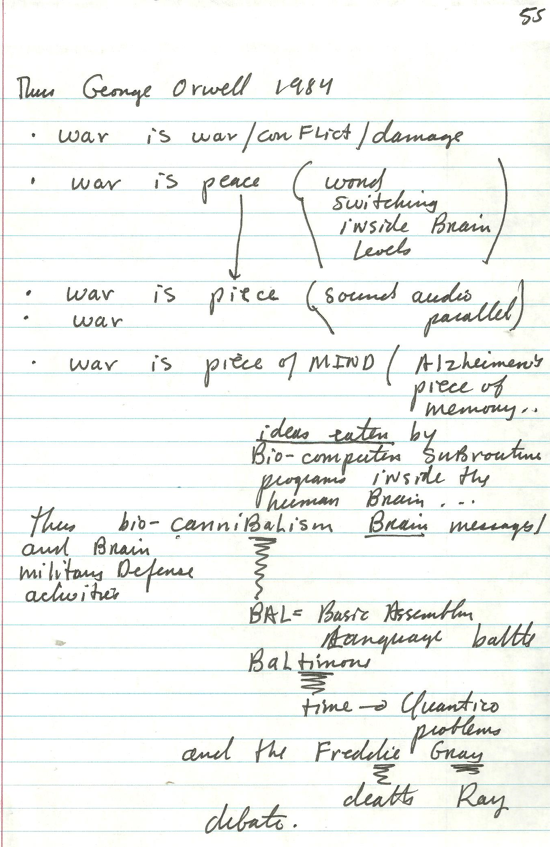 55
Thus George Orwell 1984
• war is war/conflict/damage
• war is peace (word
switching
inside Brain
Levels)
• war is piece (sound audio
• war parallel)
• war is piece of MIND (Alzheimer's
piece of
memory..
ideas eaten by
Bio-computer SuBroutine
programs inside the
human Brain ...
Thus bio-canniBalism Brain messages/
and Brain
military Defense
activities
BAL= Basic Assembler
Language battle
BaLtimore
time → Quantico
problems
and the Freddie Gray
death Ray
debate.